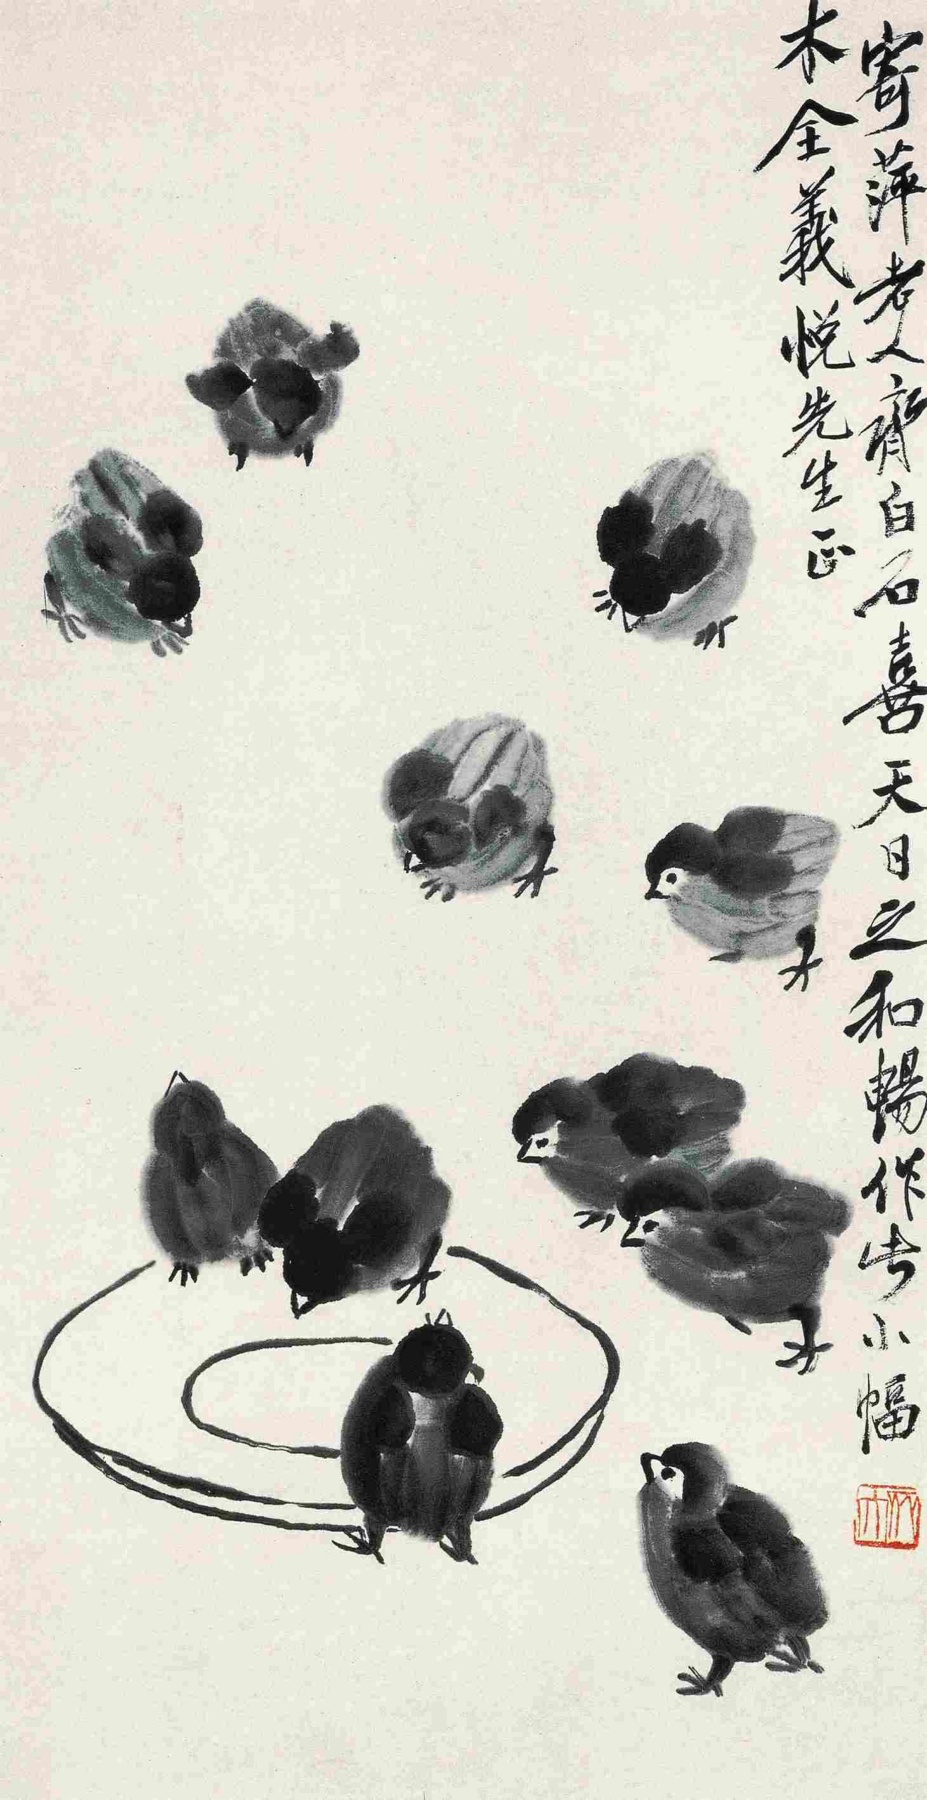 寄萍老人齊白石喜天日之和暢作此小幅
木全義悅先生正
木人